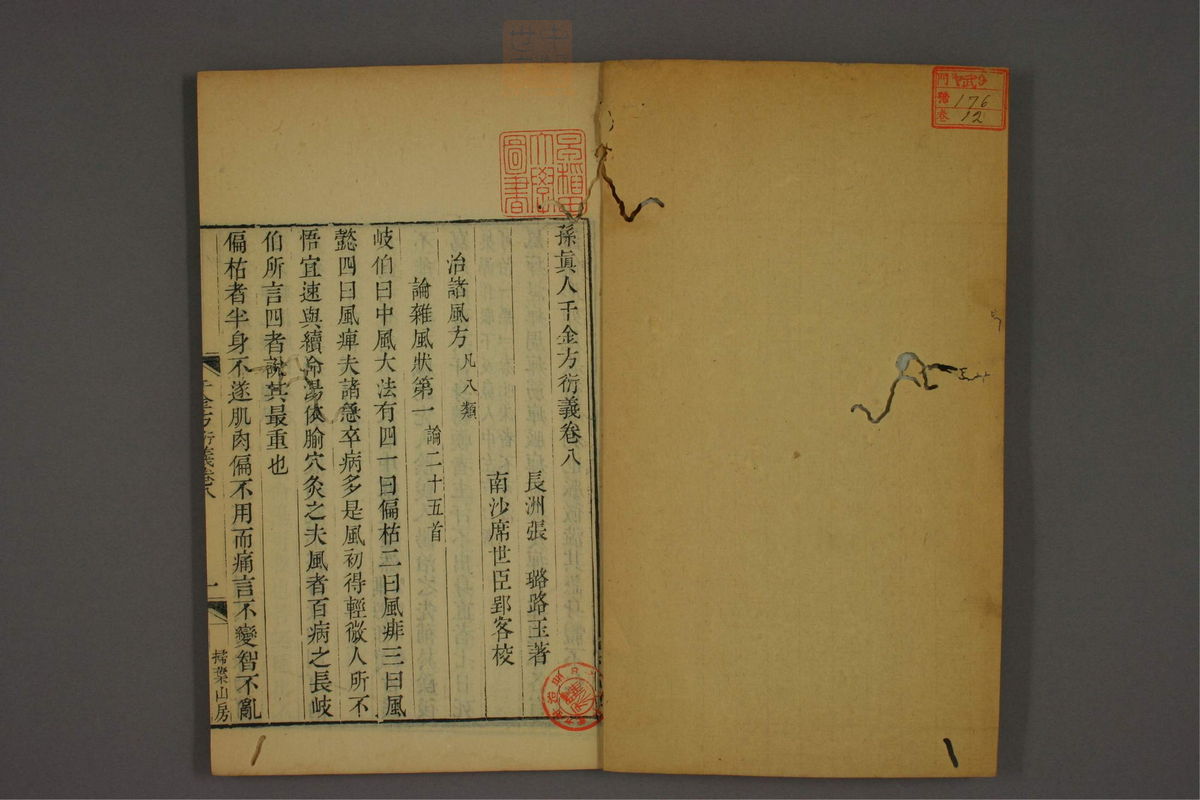 孫眞人千金方衍義卷八
長洲張 璐路玉著
南沙席世臣郢客校
治諸風方凡八類
論雜風狀第一論二十五首
岐伯曰中風大法有四一曰偏枯二曰風痱三曰風
懿四曰風痺夫諸急卒病多是風初得輕微人所不
悟宜速與續命湯依腧穴灸之夫風者百病之長岐
伯所言四者說其最重也
偏枯者半身不遂肌肉偏不用而痛言不變智不亂
千金方衍義卷八
一
掃葉山房
早稻田
大學
圖書
門
號 176
卷 12